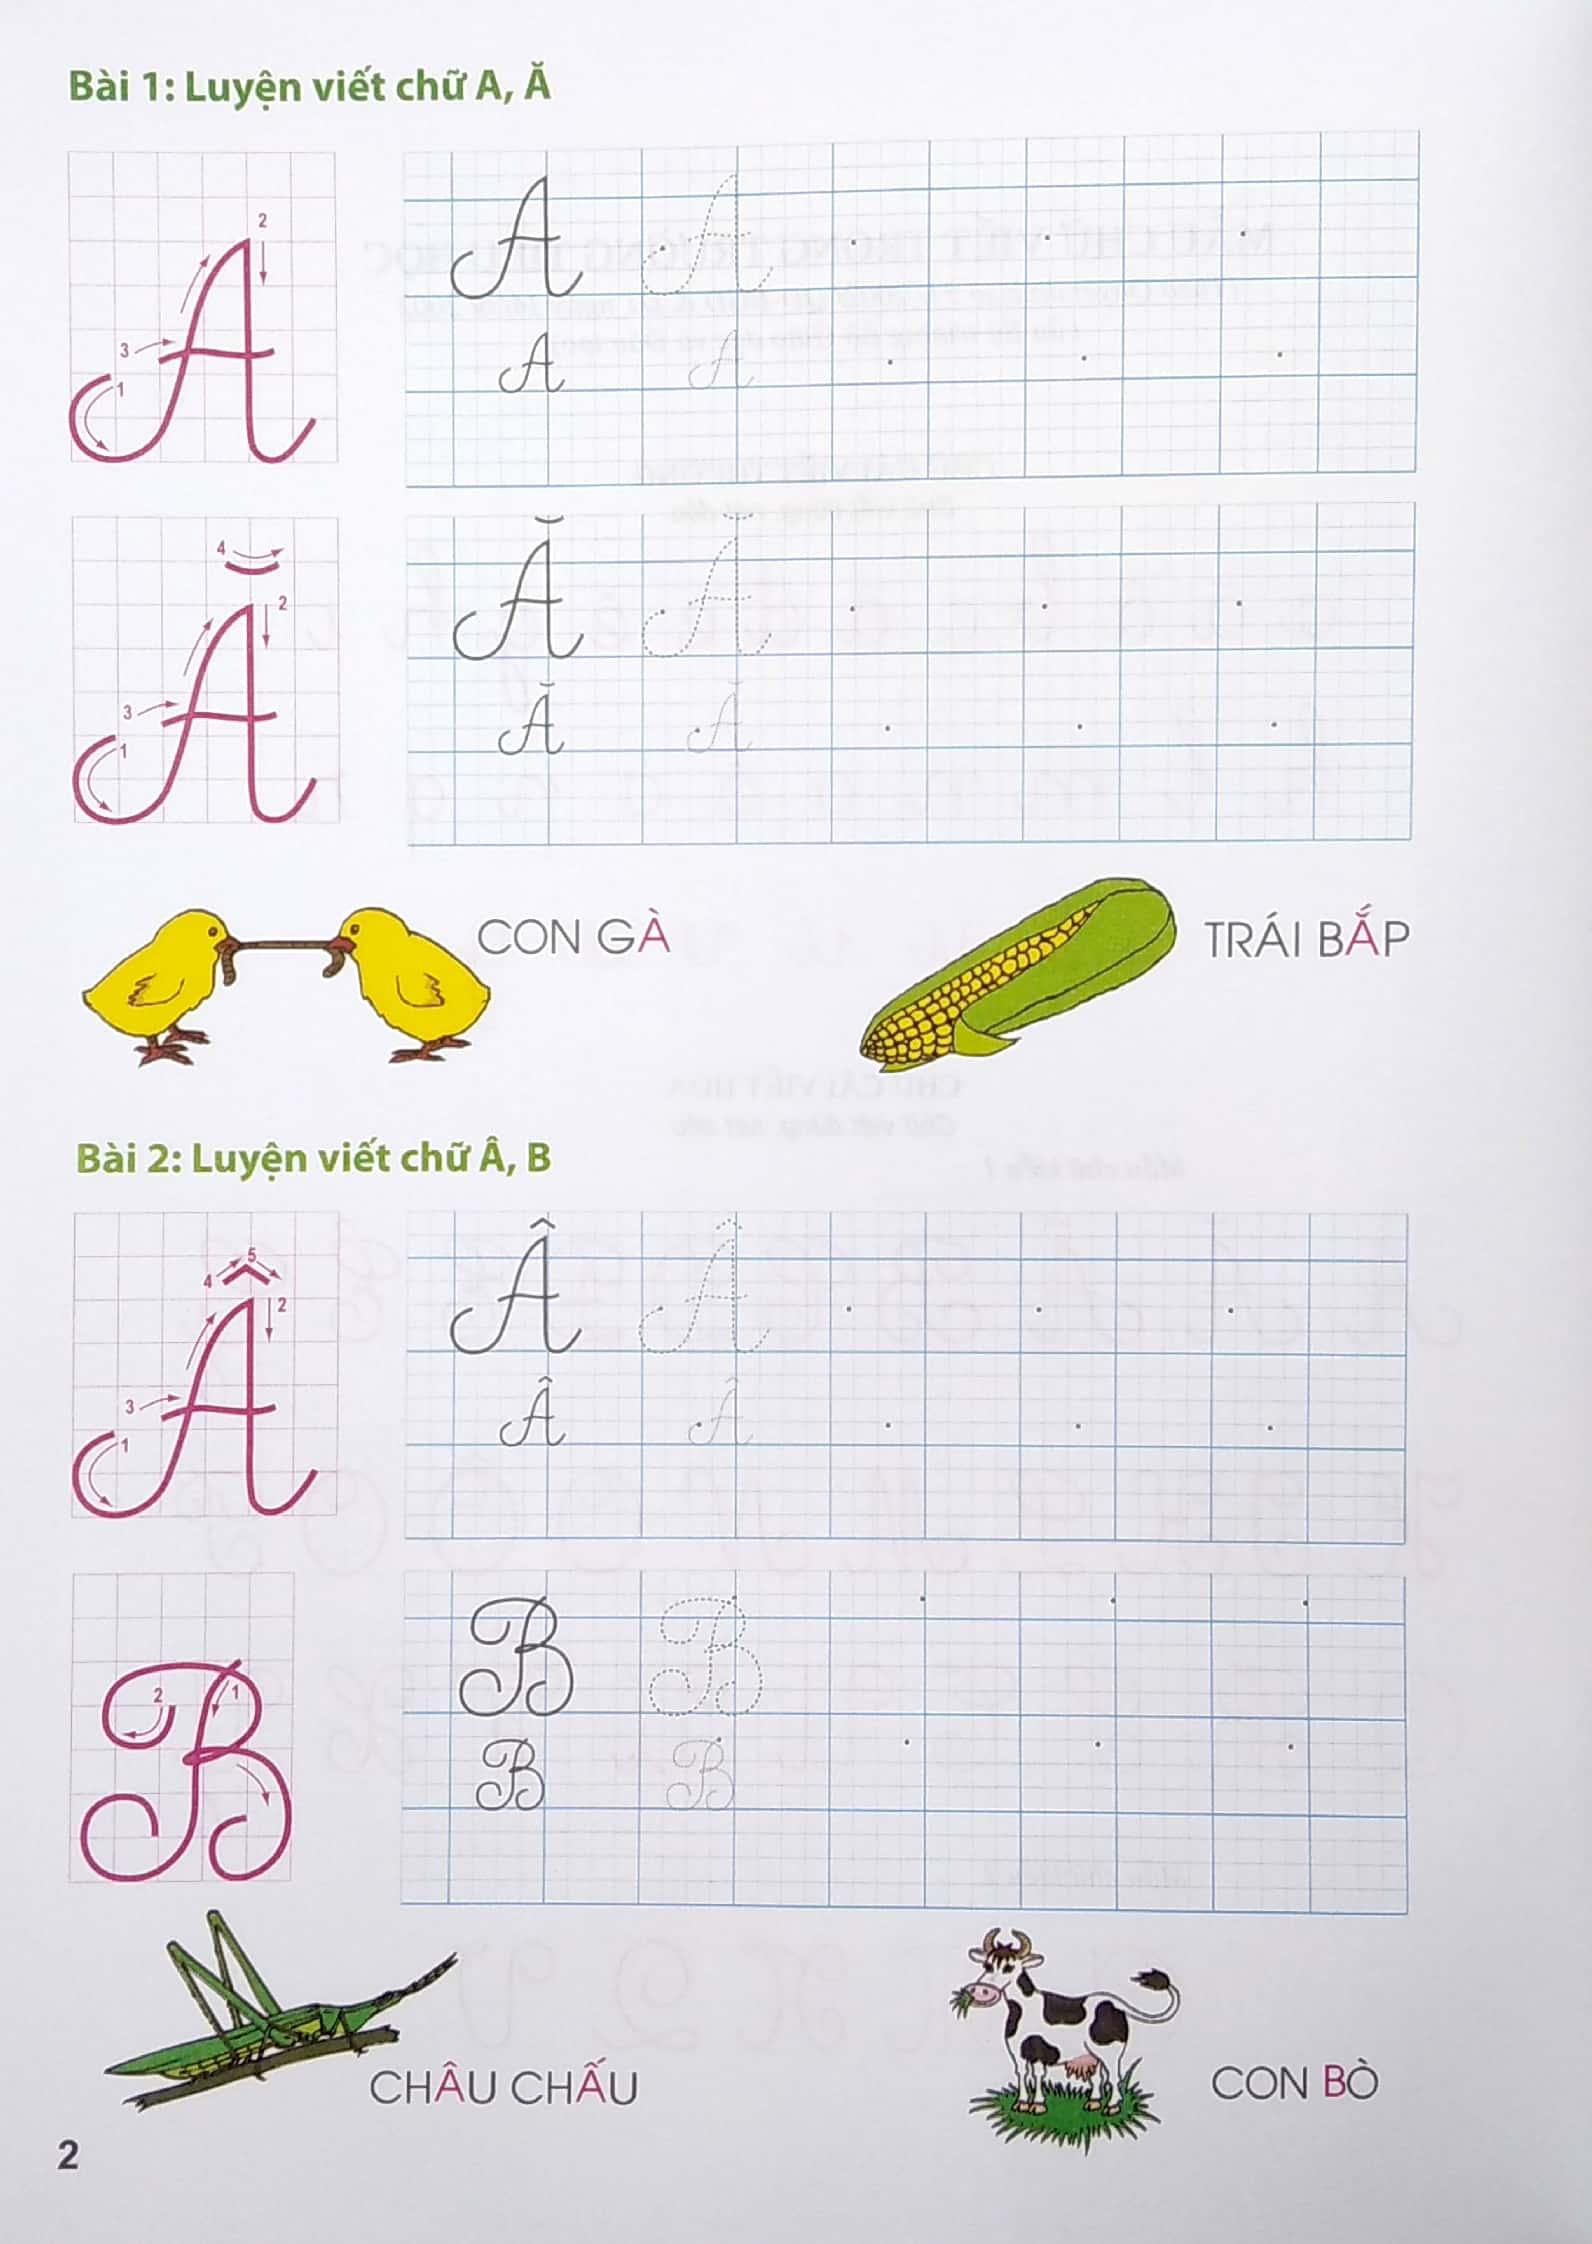 Bài 1: Luyện viết chữ A, Ă
2
3
1
A A
A A
4
2
3
1
Ă Ă
Ă Ă
CON GÀ
TRÁI BẮP
Bài 2: Luyện viết chữ Â, B
5
4
2
3
1
Â Â
Â Â
2
1
B B
B B
CHÂU CHẤU
CON BÒ
2